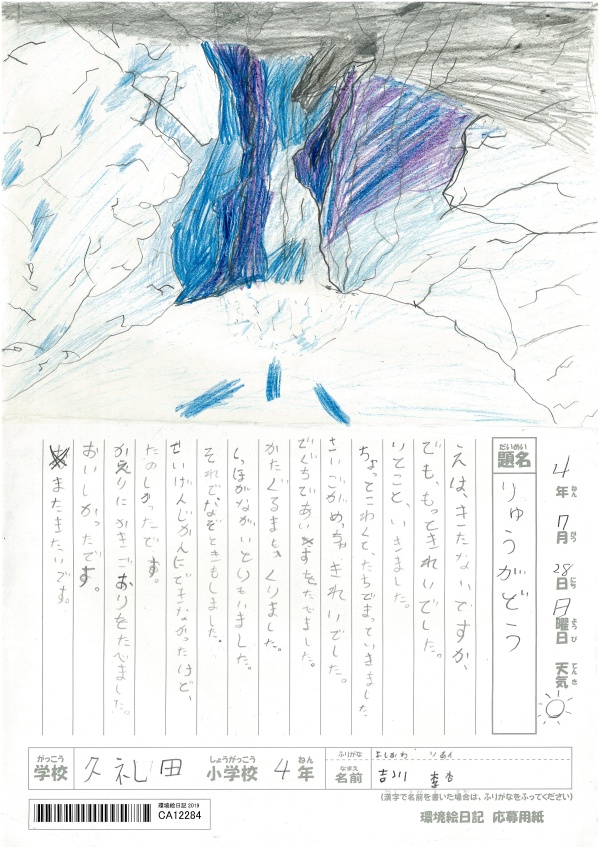 4年 7月 28日 日曜日 天気
ねん がつ にち ようび てんき
だいめい
題名
りゅうがどう
えは、きたないですか、
でも、もっときれいでした。
りとこと、いきました。
ちょっとこわくて、たちどまっていきました
さいごがめっちゃきれいでした。
でぐちであいすをたべました。
かたぐるまも、くりました。
しっぽがながいとりもいました。
それで、なぞときもしました。
せいげんじかんにできなかったけど、
たのしかったです。
かえりにかきごおりをたべました。
おいしかったです。
またきたいです。
がっこう しょうがっこう ねん
学校 久礼田 小学校 4年
ふりがな よしかわ りあん
なまえ
名前 吉川 李杏
(漢字で名前を書いた場合は、ふりがなをふってください)
環境絵日記 2019
CA12284
環境絵日記 応募用紙